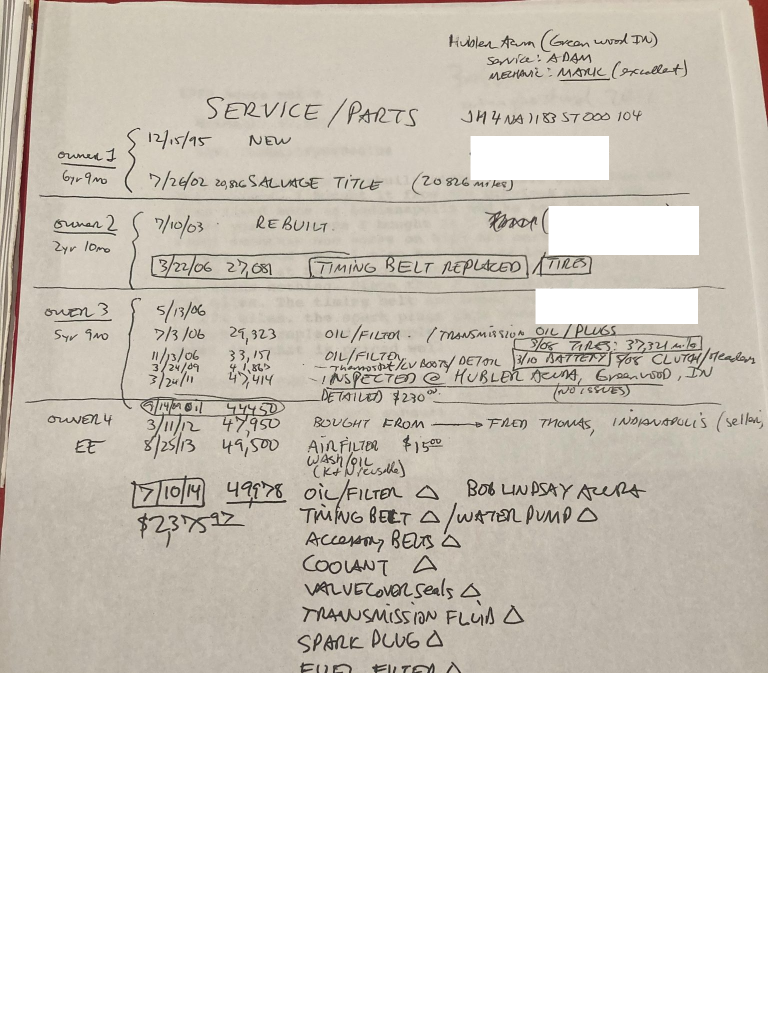 Hubler Acura (Greenwood IN)
Service: ADAM
MECHANIC: MARK (excellent)
SERVICE/PARTS
JH4NA1183ST000104
owner 1
6yr 9mo
12/15/95 NEW
7/26/02 20,826 SALVAGE TITLE (20826 miles)
owner 2
2yr 10mo
7/10/03 REBUILT.
3/22/06 27,081 TIMING BELT REPLACED / TIRES
OWER 3
5yr 9mo
5/13/06
7/3/06 29,323 OIL/FILTER. /TRANSMISSION OIL/PLUGS
3/08 TIRES: 37,321 mile
11/13/06 33,151 OIL/FILTER
3/24/09 41,867 - Thermostat/CV BOOTS/DETAIL 3/10 BATTERY 5/08 CLUTCH/Headers
3/24/11 47,414 - INSPECTED @ HUBLER ACURA, Greenwood, IN
(NO ISSUES)
DETAILED $230
9/14/09 oil 44450
OWNER 4
EE
3/11/12 47,950 BOUGHT FROM → FRED THOMAS, INDIANAPOLIS (seller,
8/25/13 49,500 AIR FILTER $15.00
WASH/OIL
(K&N/reusable)
7/10/14 49,978 OIL/FILTER △ BOB LINDSAY ACURA
$2,375.97 TIMING BELT △ / WATER PUMP △
ACCESSORY BELTS △
COOLANT △
VALVE COVER seals △
TRANSMISSION FLUID △
SPARK PLUG △
FUEL FILTER △